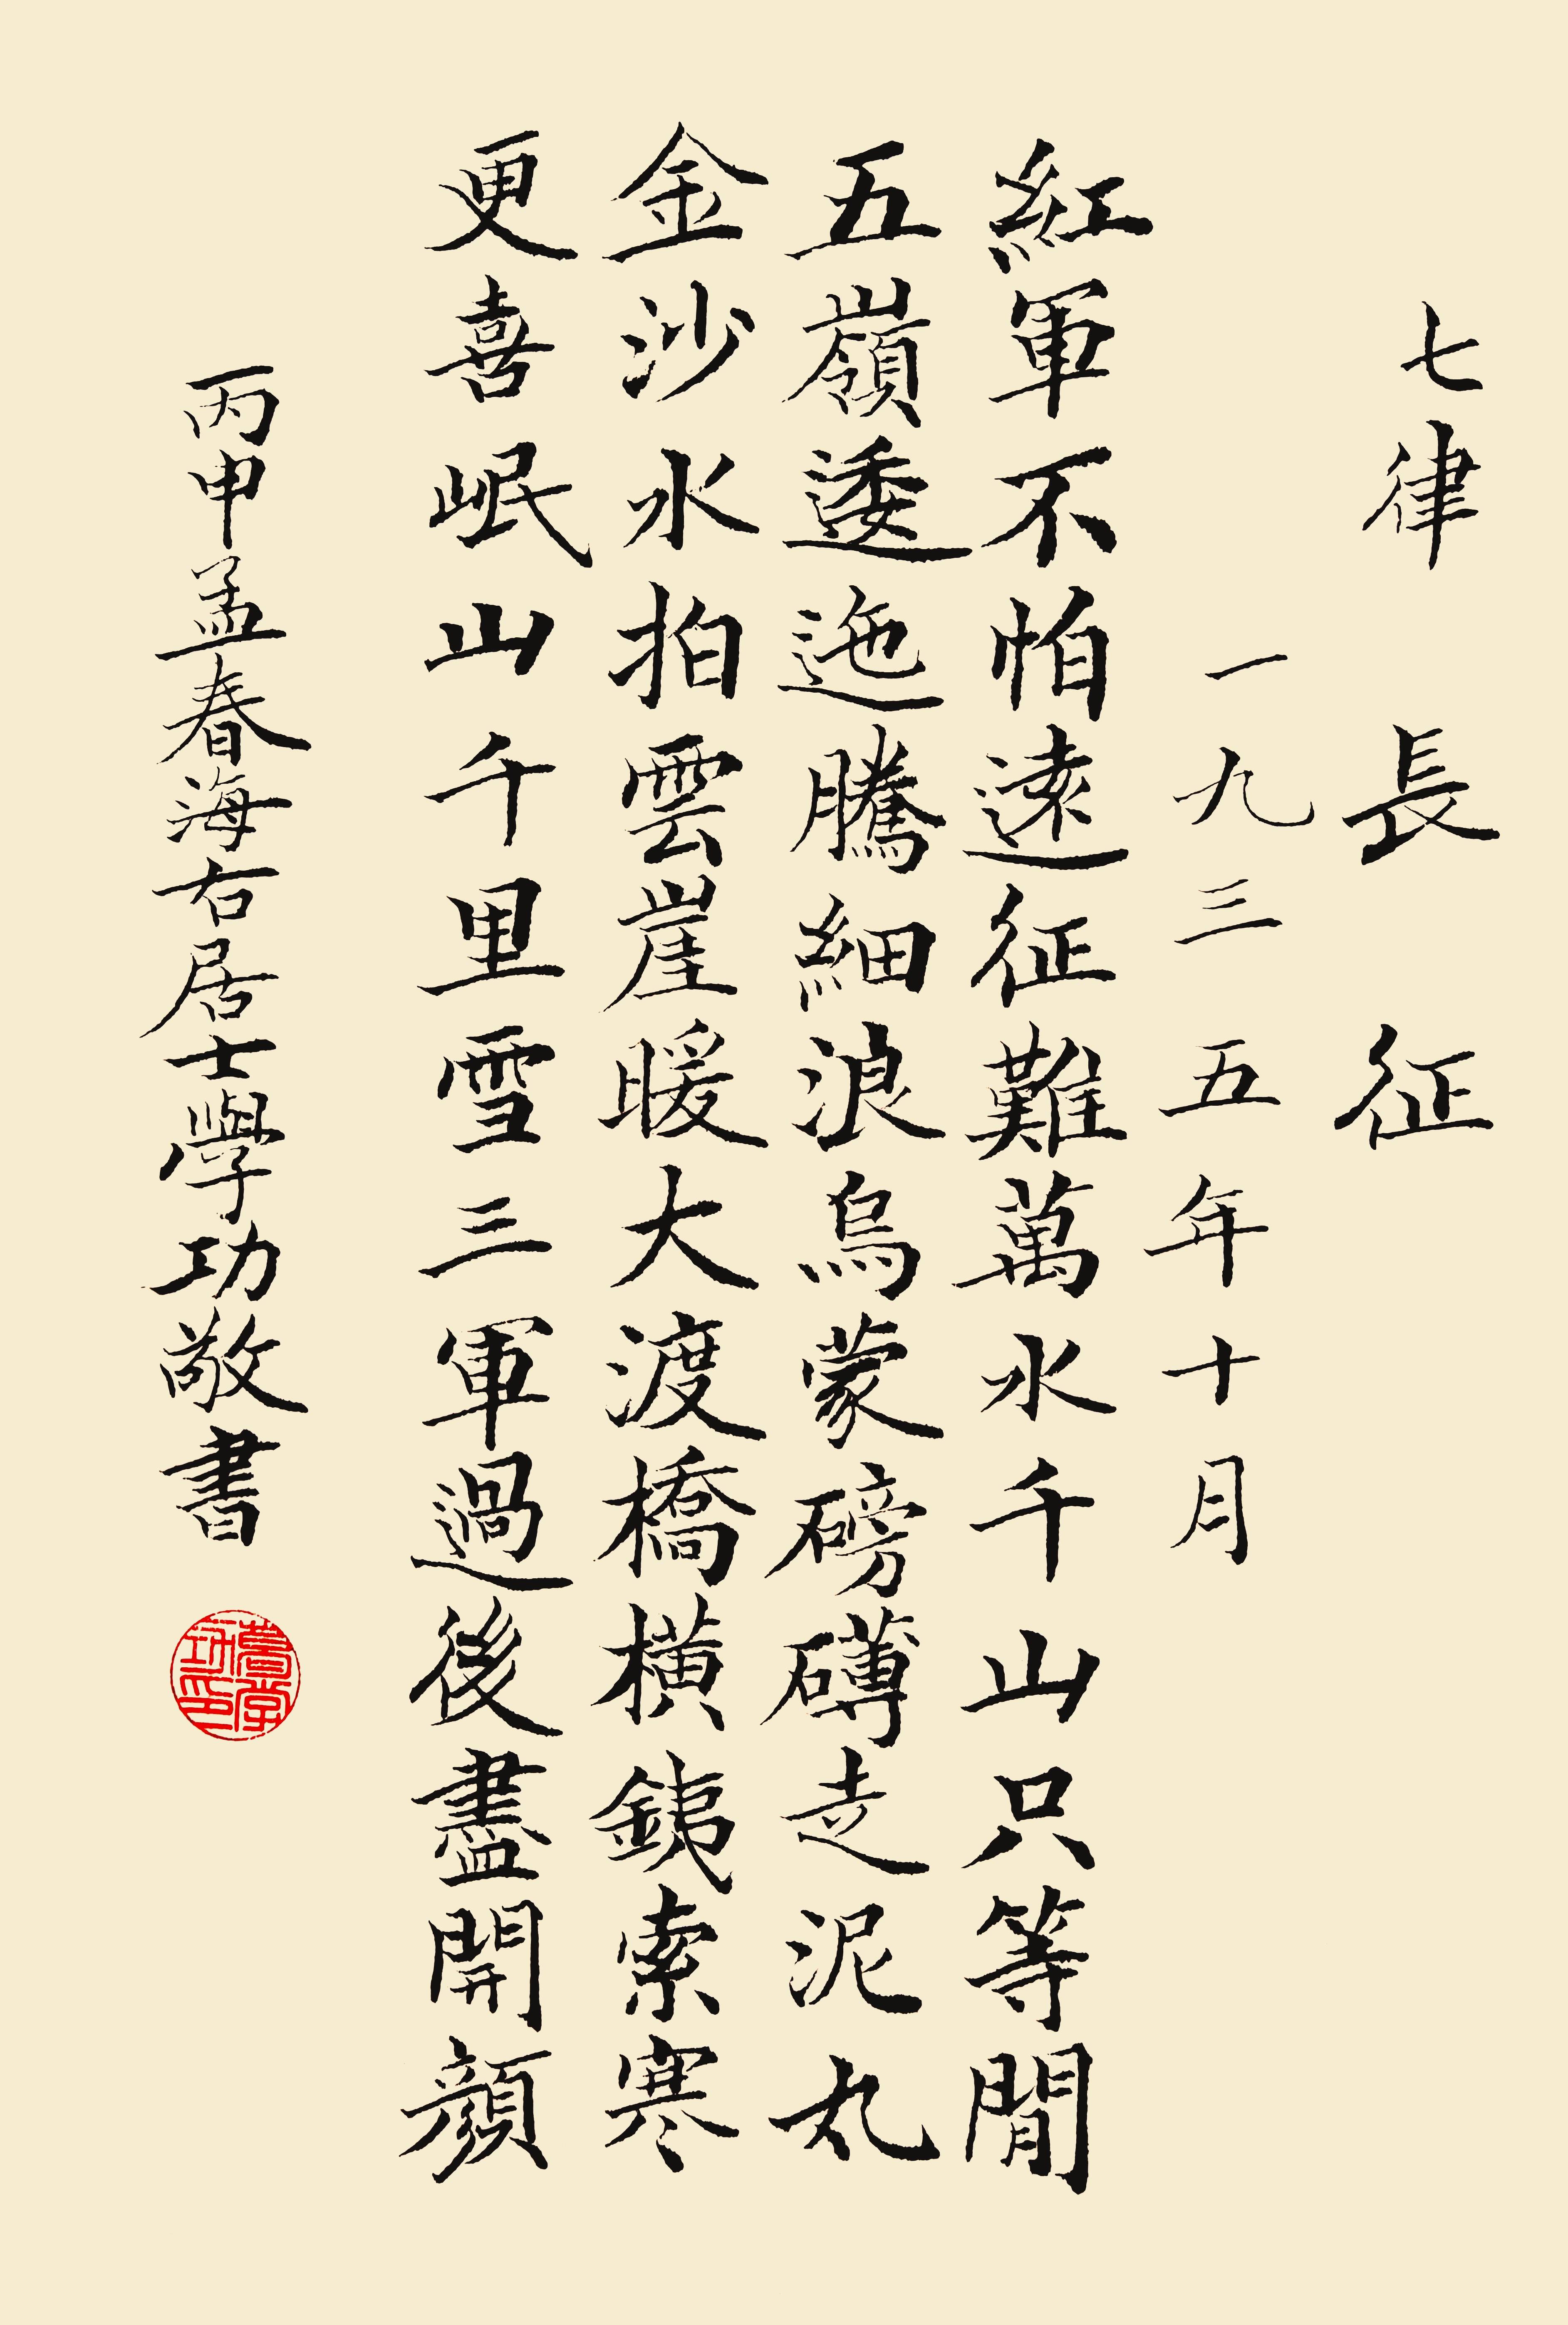 七律 長征
一九三五年十月
紅軍不怕遠征難萬水千山只等閒
五嶺逶迤騰細浪烏蒙磅礴走泥丸
金沙水拍雲崖暖大渡橋橫銕索寒
更喜岷山千里雪三軍過後盡開顏
丙申孟春海右居士學功敬書